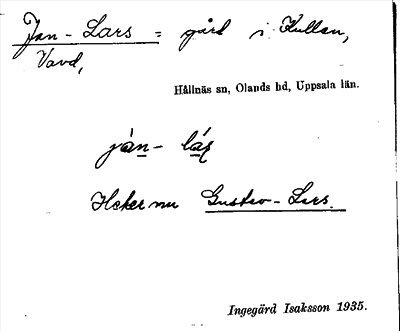 Jan-Lars = gård i Kullen,
Vavd,
Hållnäs sn, Olands hd, Uppsala län.
jàn- lás
Heter nu Gustav-Lars.
Ingegärd Isaksson 1935.